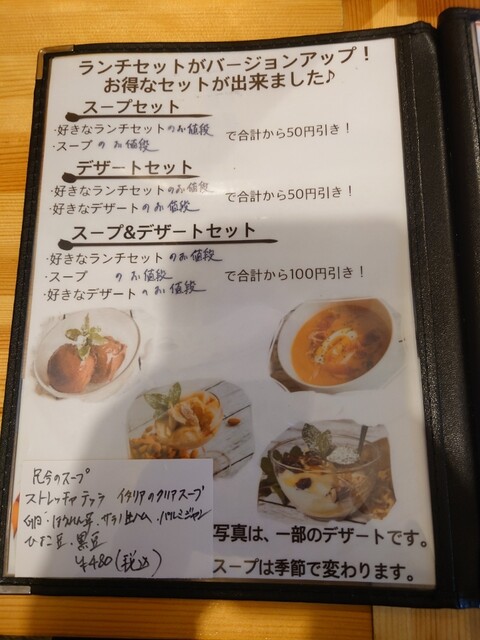 ランチセットがバージョンアップ！
お得なセットが出来ました♪
スープセット
・好きなランチセットのお値段
・スープのお値段
で合計から50円引き！
デザートセット
・好きなランチセットのお値段
・好きなデザートのお値段
で合計から50円引き！
スープ&デザートセット
・好きなランチセットのお値段
・スープのお値段
・好きなデザートのお値段
で合計から100円引き！
只今のスープ
ストレッチャテッラ イタリアのクリアスープ
卵・ほうれん草・サラミ・生ハム・パルミジャン
ひよこ豆・黒豆
¥480(税込)
写真は、一部のデザートです。
スープは季節で変わります。